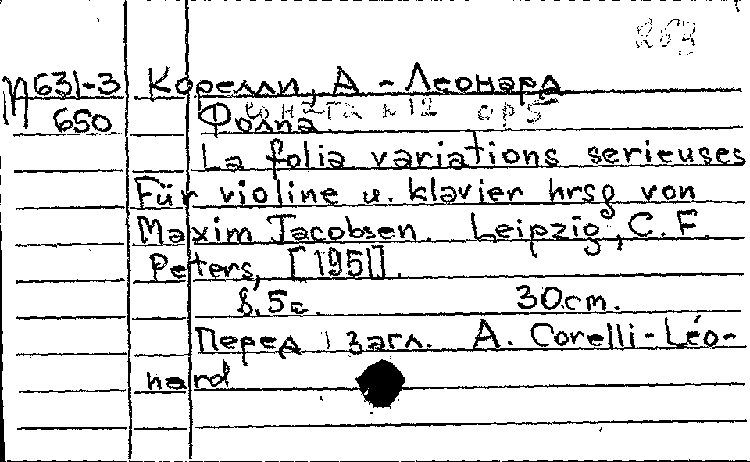 263
М631-3 Корелли, А - Леонард
650 Фолиа Соната n 12 op 5
La folia variations serieuses
Für violine u. klavier hrsg von
Maxim Jacobsen. Leipzig, C. F.
Peters, [1951].
8, 5с. 30cm.
Перед загл. A. Corelli-Léo-
nard